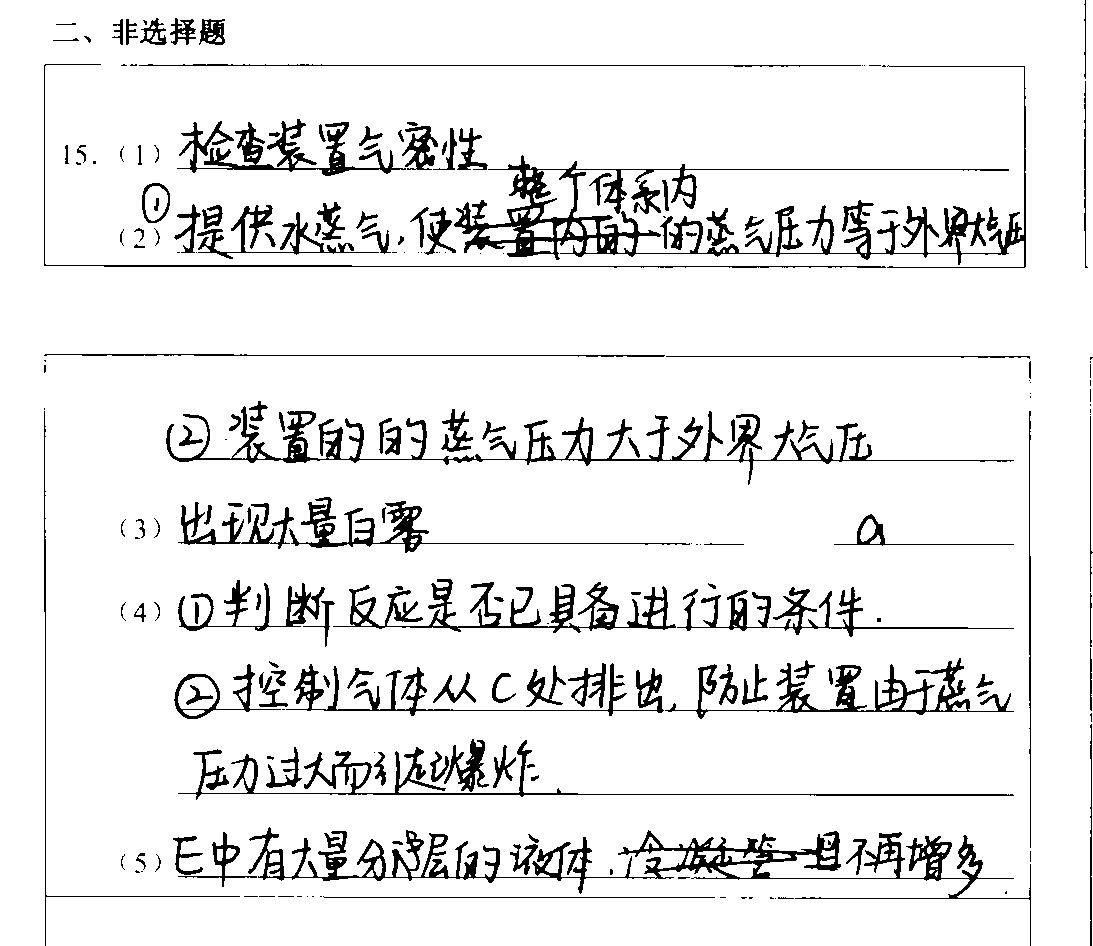 二、非选择题
15.（1）检查装置气密性
整个体系内
①
（2）提供水蒸气，使装置内的的蒸气压力等于外界大气压
②装置的的蒸气压力大于外界大气压
（3）出现大量白雾 a
（4）①判断反应是否已具备进行的条件.
②控制气体从C处排出，防止装置由于蒸气
压力过大而引起爆炸.
（5）E中有大量分层的液体，冷凝管且不再增多